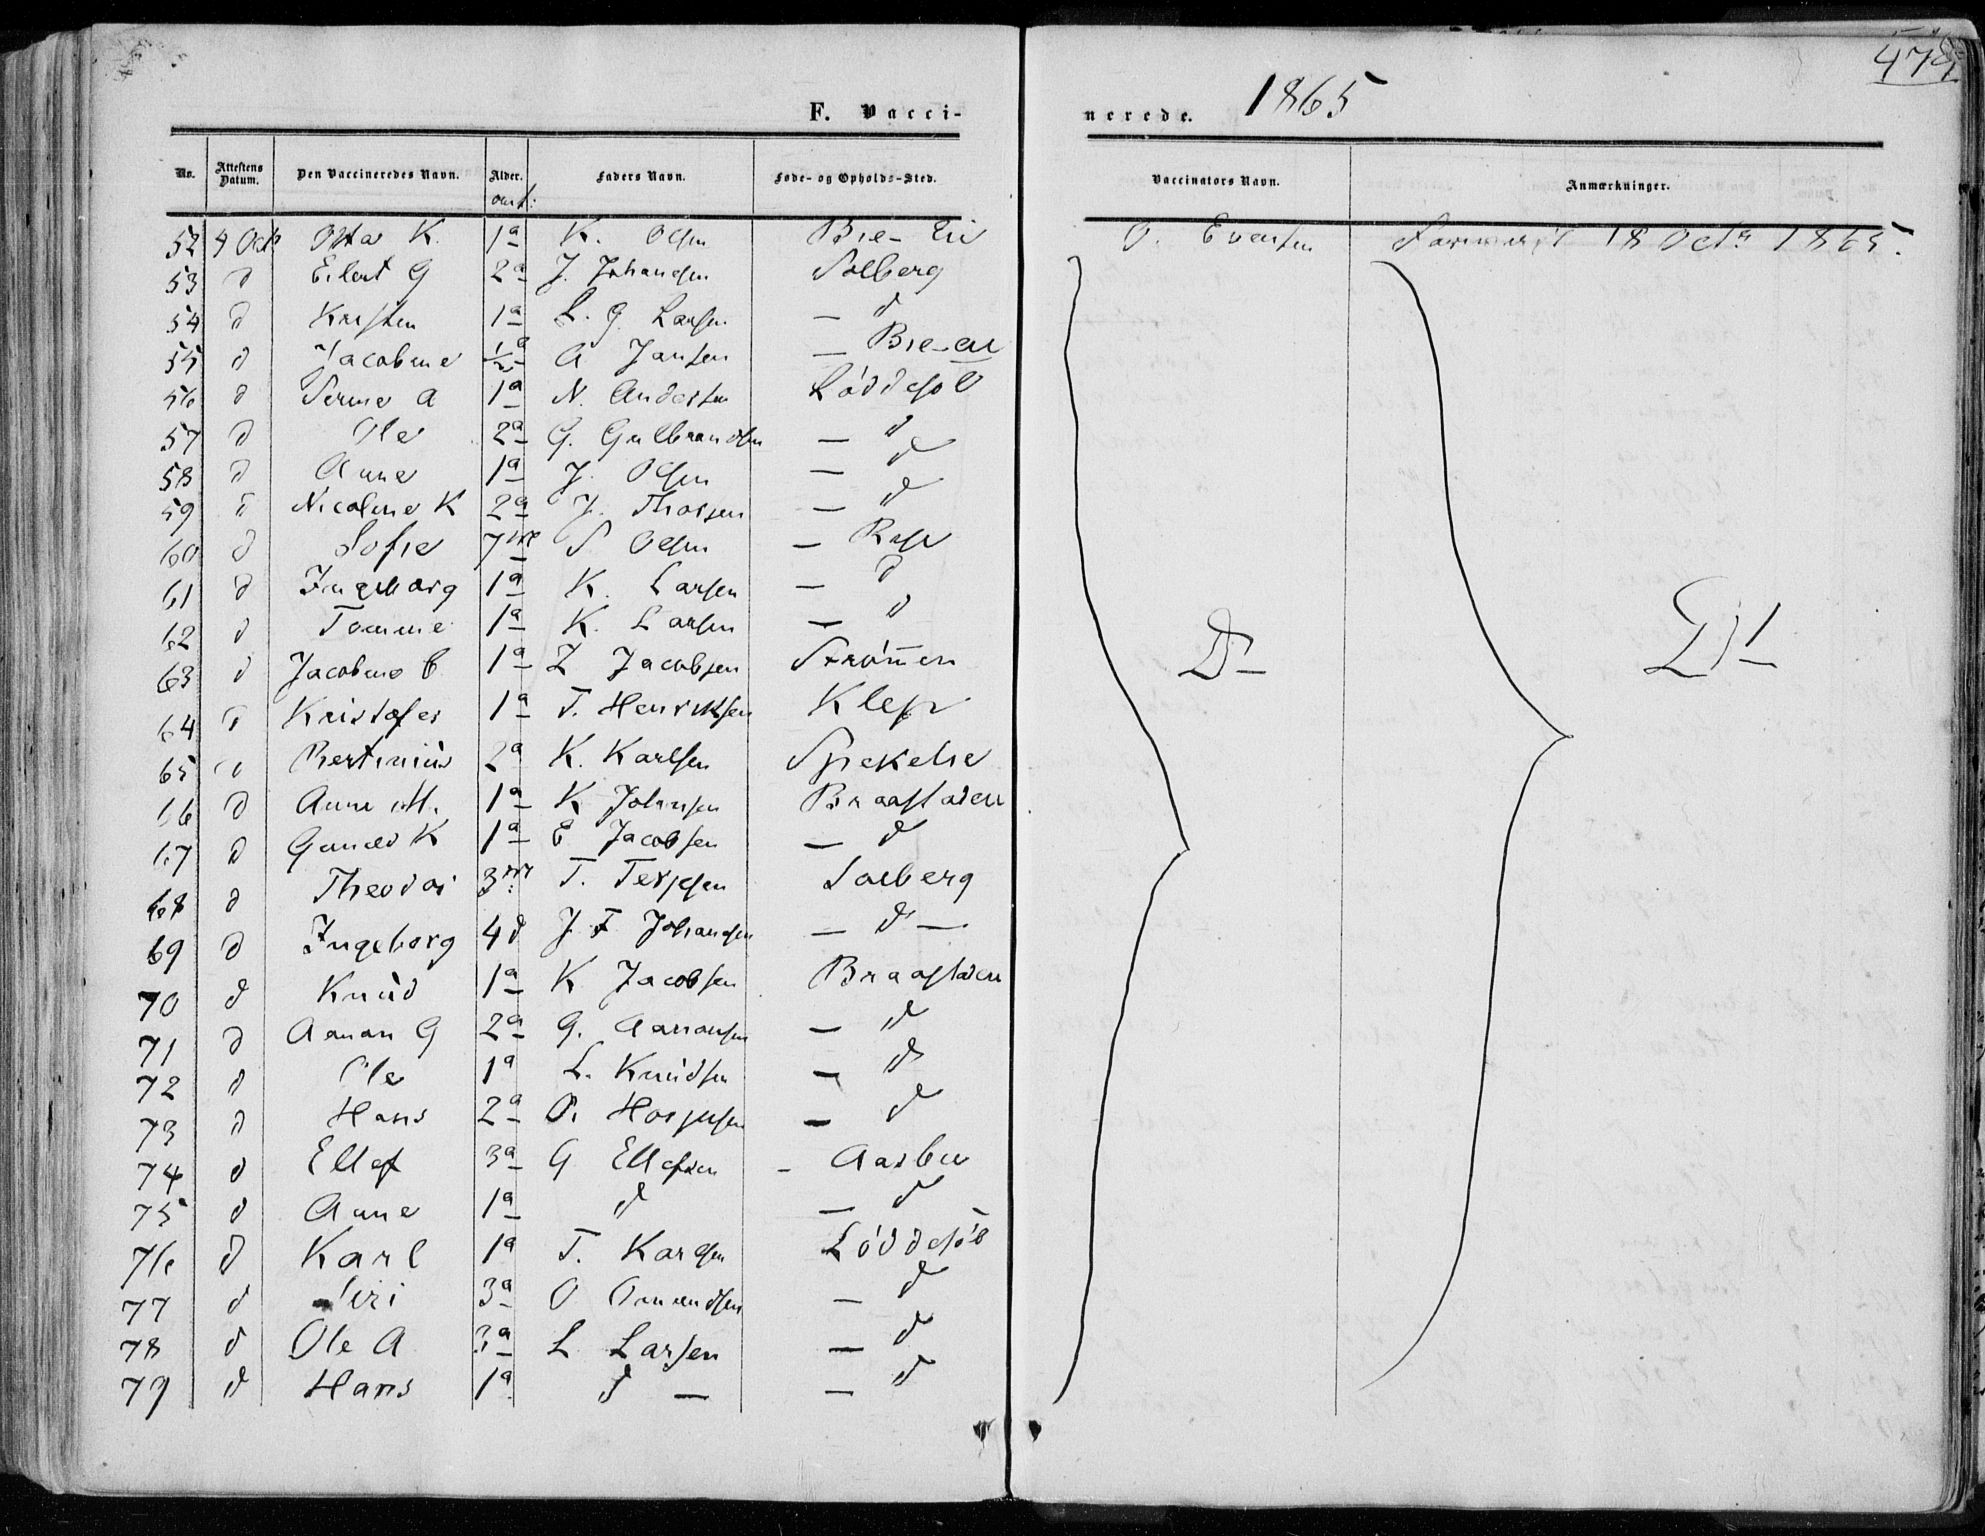 F. Vacci-
nerede. 1865
No. Attestens Datum. Den Vaccineredes Navn. Alder. Faders Navn. Føde- og Opholds-Sted. Vaccinators Navn. Anmærkninger.
52 4 Octr K. 1a K. Olsen Bie-Eie O. Evensen 18 Octr 1865.
53 d Eilert G 2a J. Johansen Solberg
54 d Kristen 1a L. G. Larsen — d
55 d Jacobine 1/2a A Jansen — Bie-eie
56 d Serine A 1a N. Andersen Løddesøl
57 d Ole 2a G. Gulbrandsen — d
58 d Anne 1a J. Olsen — d
59 d Nicoline K 2a J. Thorsen — d
60 d Sofie 7 S Olsen —
61 d Ingeborg 1a K. Larsen — d
62 d Tomine 1a K. Larsen — d
63 d Jacobine 1a Z Jacobsen Strømmen
64 d Kristofer 1a T. Henriksen Klep
65 d Bertinius 2a K. Karlsen
66 d Anne M. 1a K Johnsen Braastaden
67 d K 1a E Jacobsen — d
68 d Theodor 3 T. Terjesen Solberg
69 d Ingeborg 4 d J. F Johansen — d —
70 d Knud 1a K Jacobsen Braastaden
71 d Aanon G 2a G. Aanonsen — d
72 d Ole 1a L. Knudsen — d
73 d Hans 2a — d
74 d Ellef 3a G Ellefsen - Aasbie
75 d Anne 1a d — d
76 d Karl 1a T. Løddesøl
77 d Siri 3a O Omundsen — d
78 d Ole A 3a L Larsen — d
79 d Hans 1a d — — d